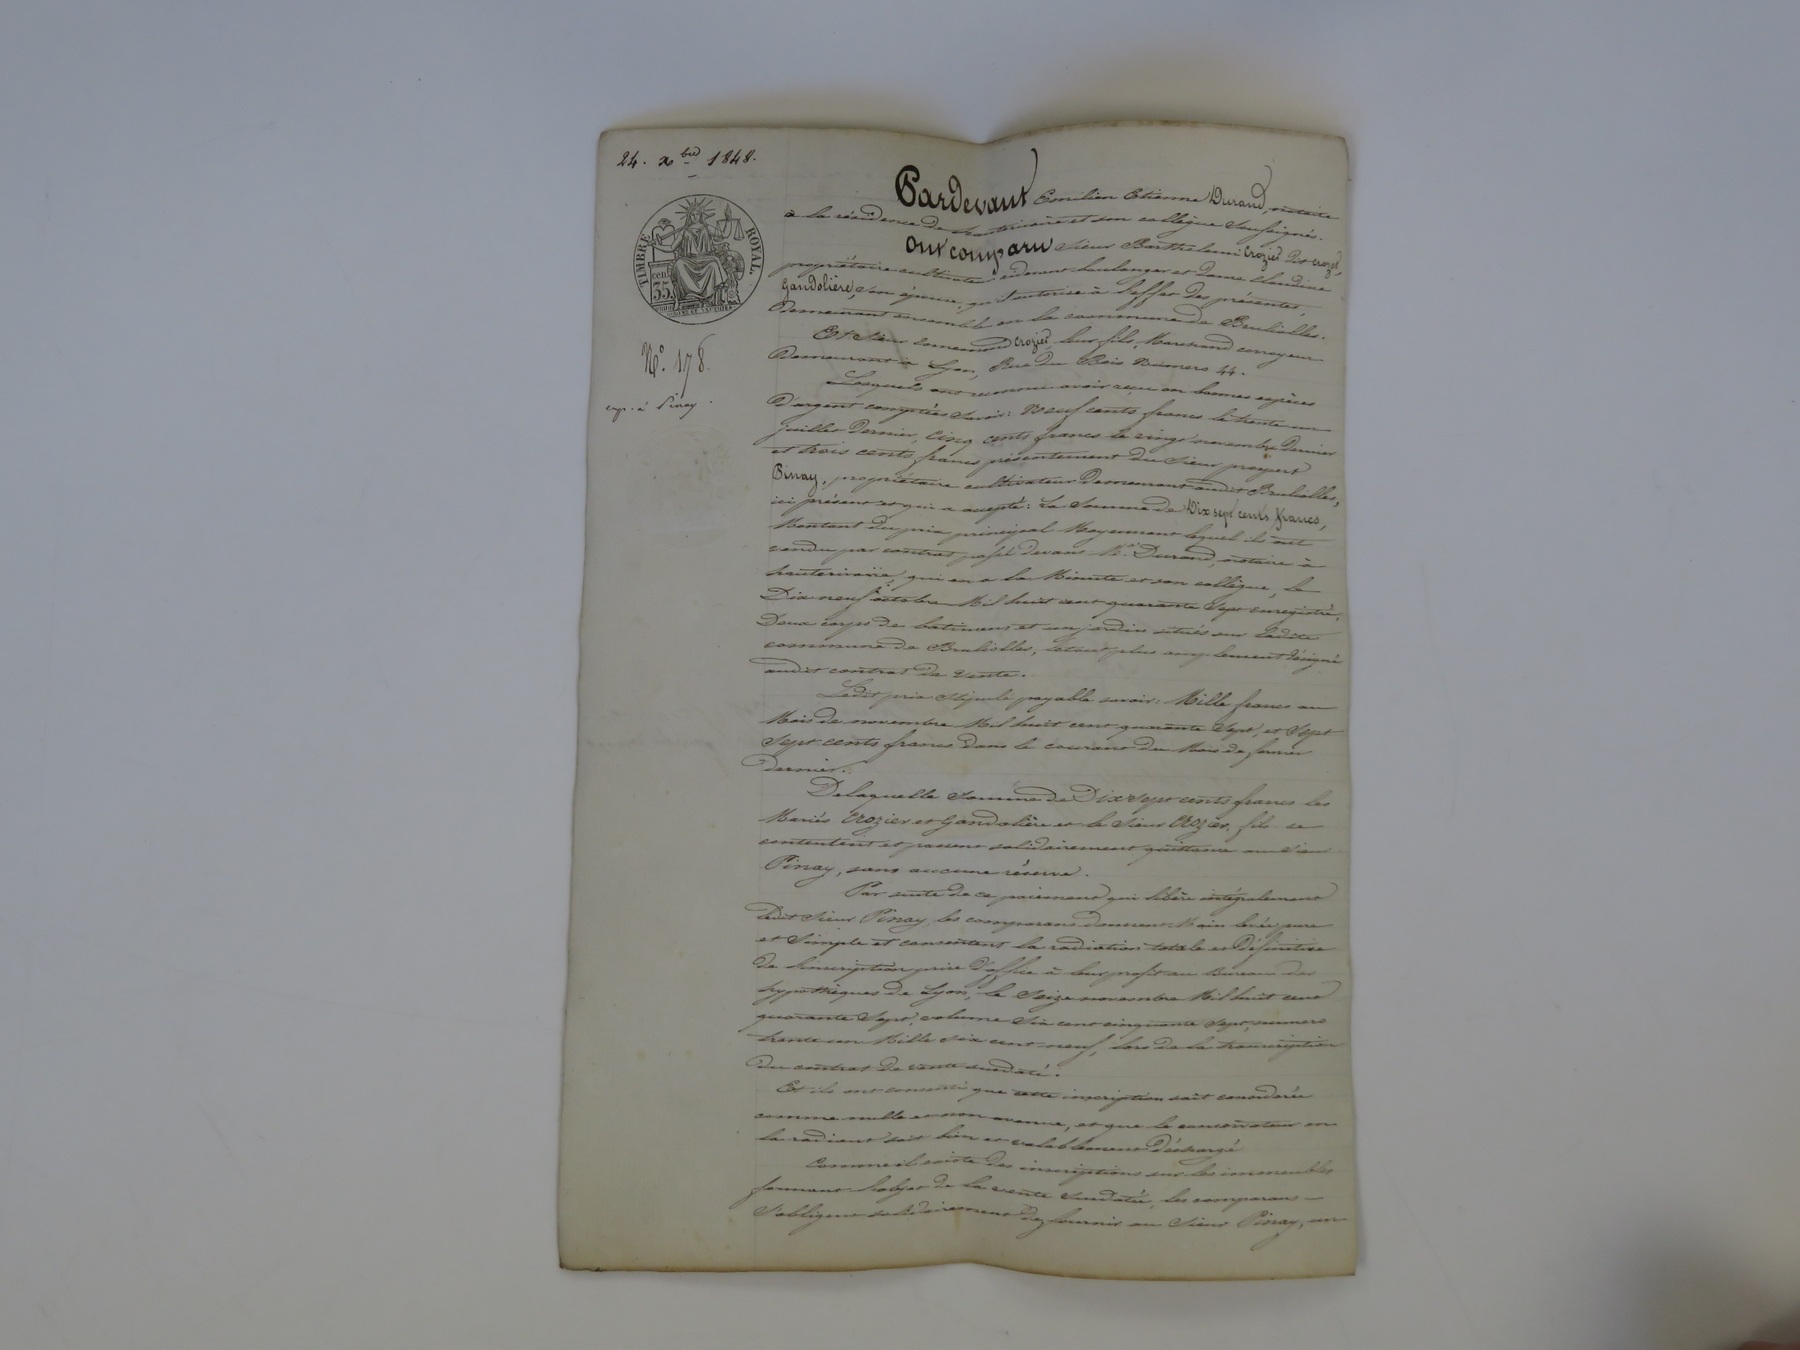 24. xbre 1848.
TIMBRE ROYAL.
35 cent
N° 178.
exp. à Pinay.
Pardevant Emilien Etienne Durand, notaire
à la résidence de hauterivoire et son collègue Soussignés.
Ont comparu Sieur Barthelemi Crozier dit crozet,
propriétaire cultivateur boulanger et dame Claudine
Gandolière, son épouse, qu'il autorise à l'effet des présentes,
Demeurant ensemble en la commune de Brulioles.
Et Sieur Crozier, leur fils, Marchand corroyeur
Demeurant à Lyon, Rue du Bois Numero 44.
Lesquels ont reconnu avoir reçu en bonnes espèces
D'argent comptées savoir: Neuf cents francs le trente un
juillet Dernier, Cinq cents francs le vingt novembre Dernier
et trois cents francs présentement du Sieur prospert
Pinay, propriétaire cultivateur Demeurant audit Brulliolles,
ici présent et qui a accepté: La Somme de Dix sept cents francs,
Montant du prix principal Moyennant lequel ils ont
vendu par contrat passé devant Me. Durand, notaire à
hauterivoire, qui en a la Minute et son collègue, le
Dix neuf octobre Mil huit cent quarante Sept enregistré,
Deux corps de batimens et un jardin situés sur ladite
commune de Brulliolles, le tout plus amplement désigné
audit contrat de vente.
Ledit prix stipulé payable savoir: Mille francs au
Mois de novembre Mil huit cent quarante Sept, et Sept
Sept cents francs dans le courant du Mois de fevrier
dernier.
De laquelle Somme de Dix sept cents francs les
Mariés Crozier et Gandolière et le Sieur Crozier, fils se
contentent et passent solidairement quittance au Sieur
Pinay, sans aucune réserve.
Par suite de ce paiement qui libère intégralement
ledit Sieur Pinay, les comparans donnent Main levée pure
et Simple et consentent la radiation totale et Définitive
de l'inscription prise d'office à leur profit au Bureau des
hypothèques de Lyon, le Seize novembre Mil huit cent
quarante Sept, volume Six cent cinquante Sept, numero
trente un Mille six cent neuf, lors de la transcription
du contrat de vente susdaté.
Et ils ont consenti que cette inscription soit considérée
comme nulle et non avenue, et que le conservateur en
la radiant soit bien et valablement Déchargé
Comme il existe des inscriptions sur les immeubles
formant l'objet de la vente susdatée, les comparans
S'obligent solidairement de fournir au Sieur Pinay, un